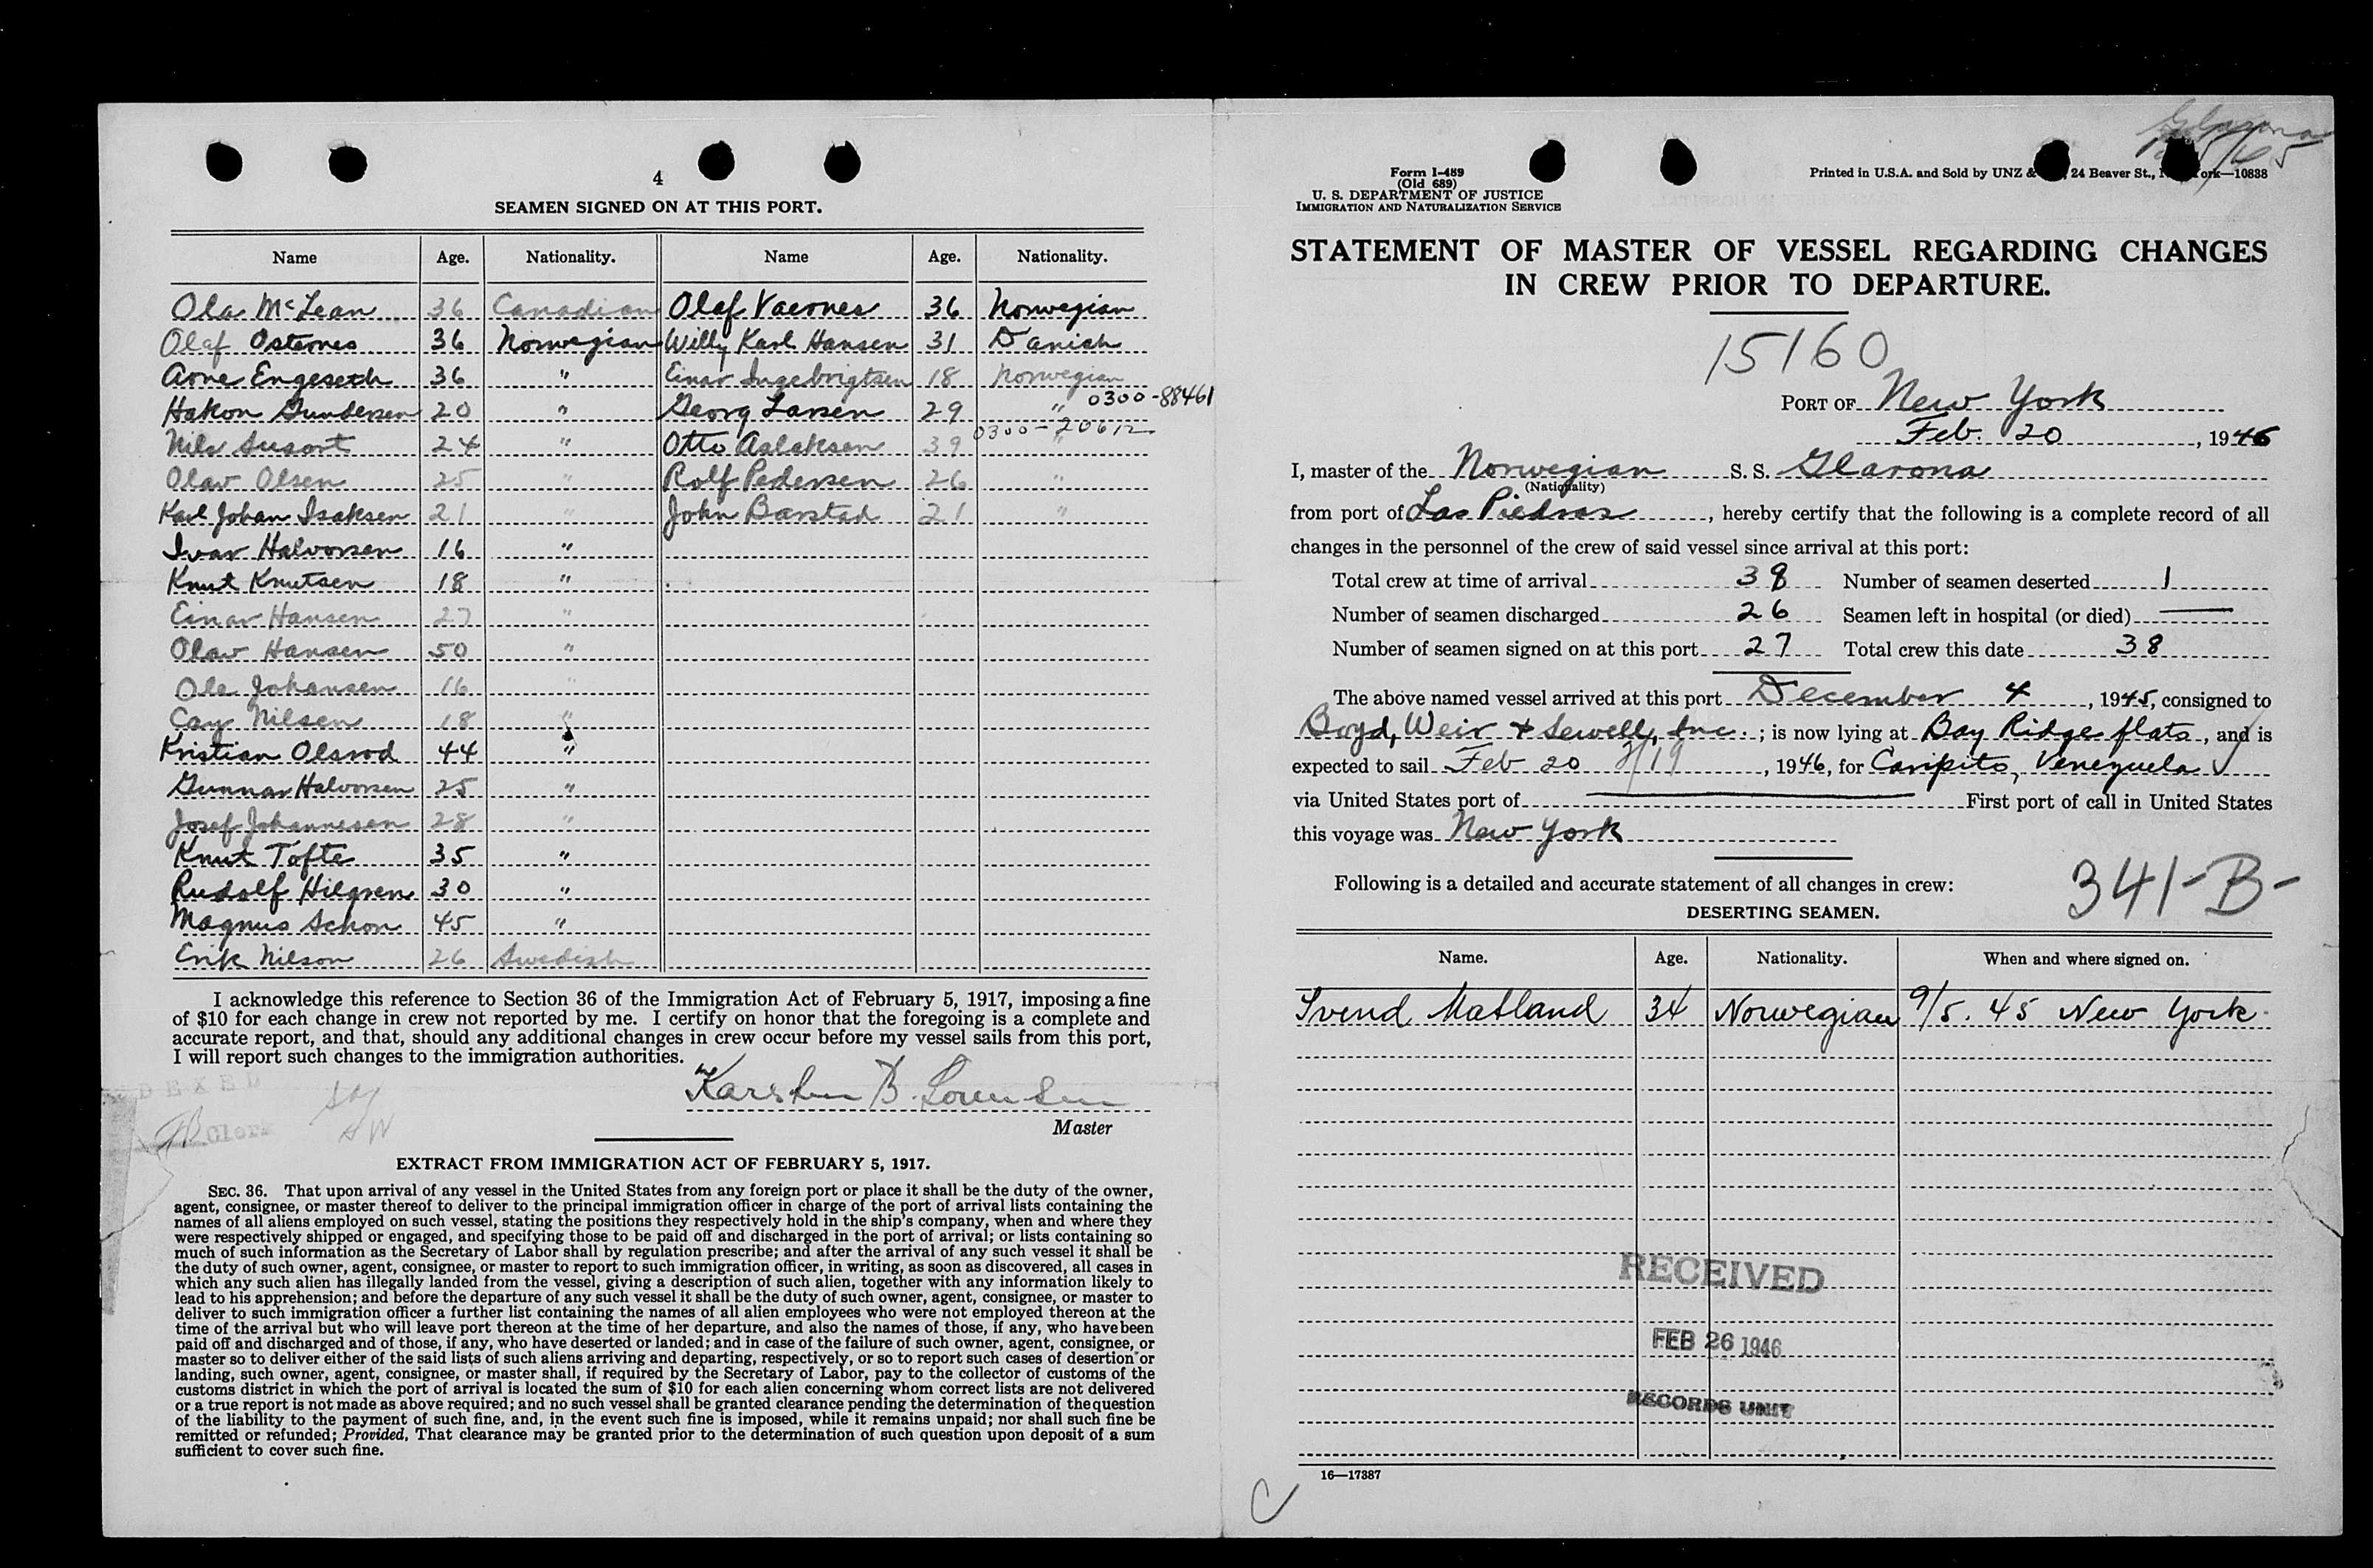 4
SEAMEN SIGNED ON AT THIS PORT.
Name Age. Nationality. Name Age. Nationality.
Ola McLean 36 Canadian Olaf Vaernes 36 Norwegian
Olaf Osternes 36 Norwegian Willy Karl Hansen 31 Danish
Arne Engeseth 36 " Einar Ingebrigtsen 18 Norwegian
0300-88461
Hakon Gundersen 20 " Georg Larsen 29 "
0300-20612
Nils Susort 24 " Otto Aslaksen 39 "
Olav Olsen 25 " Rolf Pedersen 26 "
Karl Johan Isaksen 21 " John Barstad 21 "
Ivar Halvorsen 16 "
Knut Knutsen 18 "
Einar Hansen 27 "
Olav Hansen 50 "
Ole Johansen 16 "
Cay Nilsen 18 "
Kristian Olsrod 44 "
Gunnar Halvorsen 25 "
Josef Johannesen 28 "
Knut Tofte 35 "
Rudolf Hilgren 30 "
Magnus Schon 45 "
Erik Nilson 26 Swedish
I acknowledge this reference to Section 36 of the Immigration Act of February 5, 1917, imposing a fine
of $10 for each change in crew not reported by me. I certify on honor that the foregoing is a complete and
accurate report, and that, should any additional changes in crew occur before my vessel sails from this port,
I will report such changes to the immigration authorities.
Master
Clerk
EXTRACT FROM IMMIGRATION ACT OF FEBRUARY 5, 1917.
SEC. 36. That upon arrival of any vessel in the United States from any foreign port or place it shall be the duty of the owner,
agent, consignee, or master thereof to deliver to the principal immigration officer in charge of the port of arrival lists containing the
names of all aliens employed on such vessel, stating the positions they respectively hold in the ship's company, when and where they
were respectively shipped or engaged, and specifying those to be paid off and discharged in the port of arrival; or lists containing so
much of such information as the Secretary of Labor shall by regulation prescribe; and after the arrival of any such vessel it shall be
the duty of such owner, agent, consignee, or master to report to such immigration officer, in writing, as soon as discovered, all cases in
which any such alien has illegally landed from the vessel, giving a description of such alien, together with any information likely to
lead to his apprehension; and before the departure of any such vessel it shall be the duty of such owner, agent, consignee, or master to
deliver to such immigration officer a further list containing the names of all alien employees who were not employed thereon at the
time of the arrival but who will leave port thereon at the time of her departure, and also the names of those, if any, who have been
paid off and discharged and of those, if any, who have deserted or landed; and in case of the failure of such owner, agent, consignee, or
master so to deliver either of the said lists of such aliens arriving and departing, respectively, or so to report such cases of desertion or
landing, such owner, agent, consignee, or master shall, if required by the Secretary of Labor, pay to the collector of customs of the
customs district in which the port of arrival is located the sum of $10 for each alien concerning whom correct lists are not delivered
or a true report is not made as above required; and no such vessel shall be granted clearance pending the determination of the question
of the liability to the payment of such fine, and, in the event such fine is imposed, while it remains unpaid; nor shall such fine be
remitted or refunded; Provided, That clearance may be granted prior to the determination of such question upon deposit of a sum
sufficient to cover such fine.
Form I-489
(Old 689)
U. S. DEPARTMENT OF JUSTICE
IMMIGRATION AND NATURALIZATION SERVICE
Printed in U.S.A. and Sold by UNZ & 24 Beaver St., ork—10838
STATEMENT OF MASTER OF VESSEL REGARDING CHANGES
IN CREW PRIOR TO DEPARTURE.
15160
PORT OF New York
Feb. 20, 1946
I, master of the Norwegian S. S. Glarona
(Nationality)
from port of Las Piedras, hereby certify that the following is a complete record of all
changes in the personnel of the crew of said vessel since arrival at this port:
Total crew at time of arrival 38 Number of seamen deserted 1
Number of seamen discharged 26 Seamen left in hospital (or died) —
Number of seamen signed on at this port 27 Total crew this date 38
The above named vessel arrived at this port December 4, 1945, consigned to
Boyd, Weir & Sewell, Inc.; is now lying at Bay Ridge flats, and is
expected to sail Feb 20 2/19, 1946, for Caripito, Venezuela
via United States port of — First port of call in United States
this voyage was New York
Following is a detailed and accurate statement of all changes in crew:
341-B-
DESERTING SEAMEN.
Name. Age. Nationality. When and where signed on.
Svend Matland 34 Norwegian 9/5. 45 New York
RECEIVED
FEB 26 1946
RECORDS UNIT
16—17387